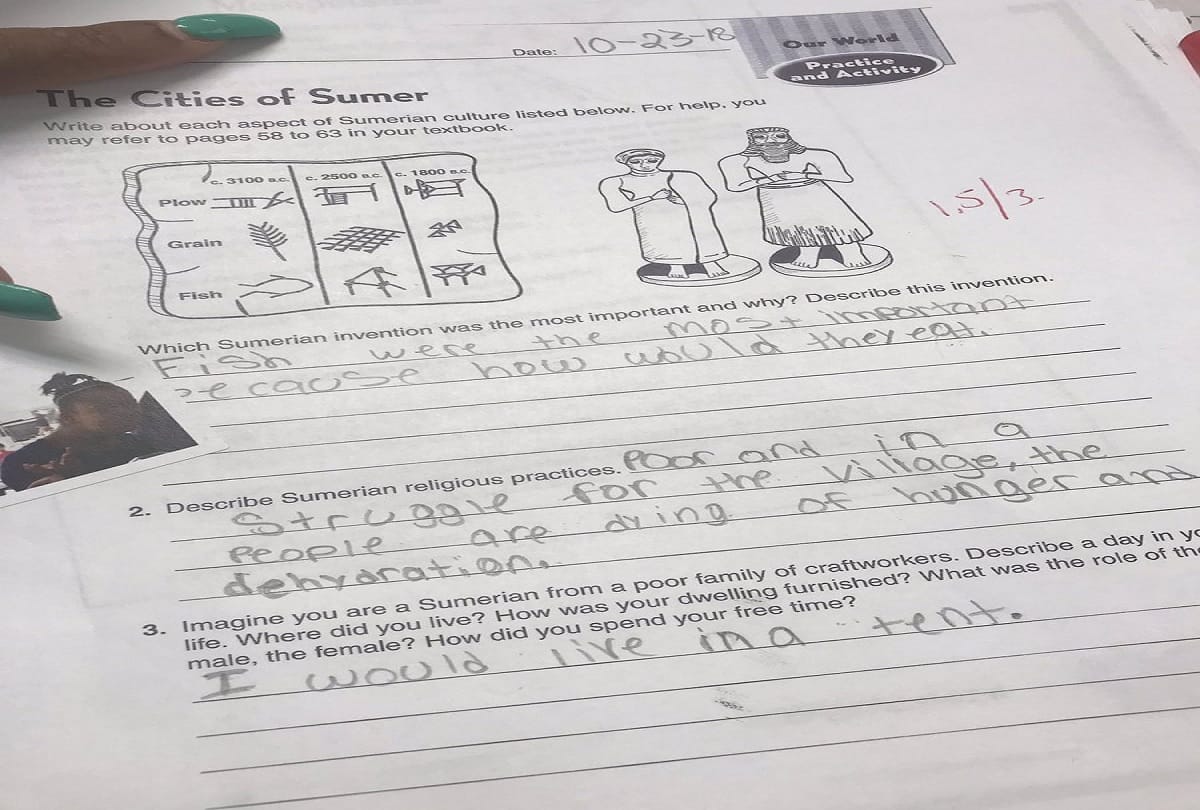 Date: 10-23-18
Our World
Practice
and Activity
The Cities of Sumer
Write about each aspect of Sumerian culture listed below. For help, you
may refer to pages 58 to 63 in your textbook.
c. 3100 B.C. c. 2500 B.C. c. 1800 B.C.
Plow
Grain
Fish
1.5/3.
Which Sumerian invention was the most important and why? Describe this invention.
Fish were the most important
because how would they eat.
2. Describe Sumerian religious practices. Poor and in a
struggle for the village, the
people are dying of hunger and
dehydration.
3. Imagine you are a Sumerian from a poor family of craftworkers. Describe a day in
life. Where did you live? How was your dwelling furnished? What was the role of
male, the female? How did you spend your free time?
I would live in a tent.